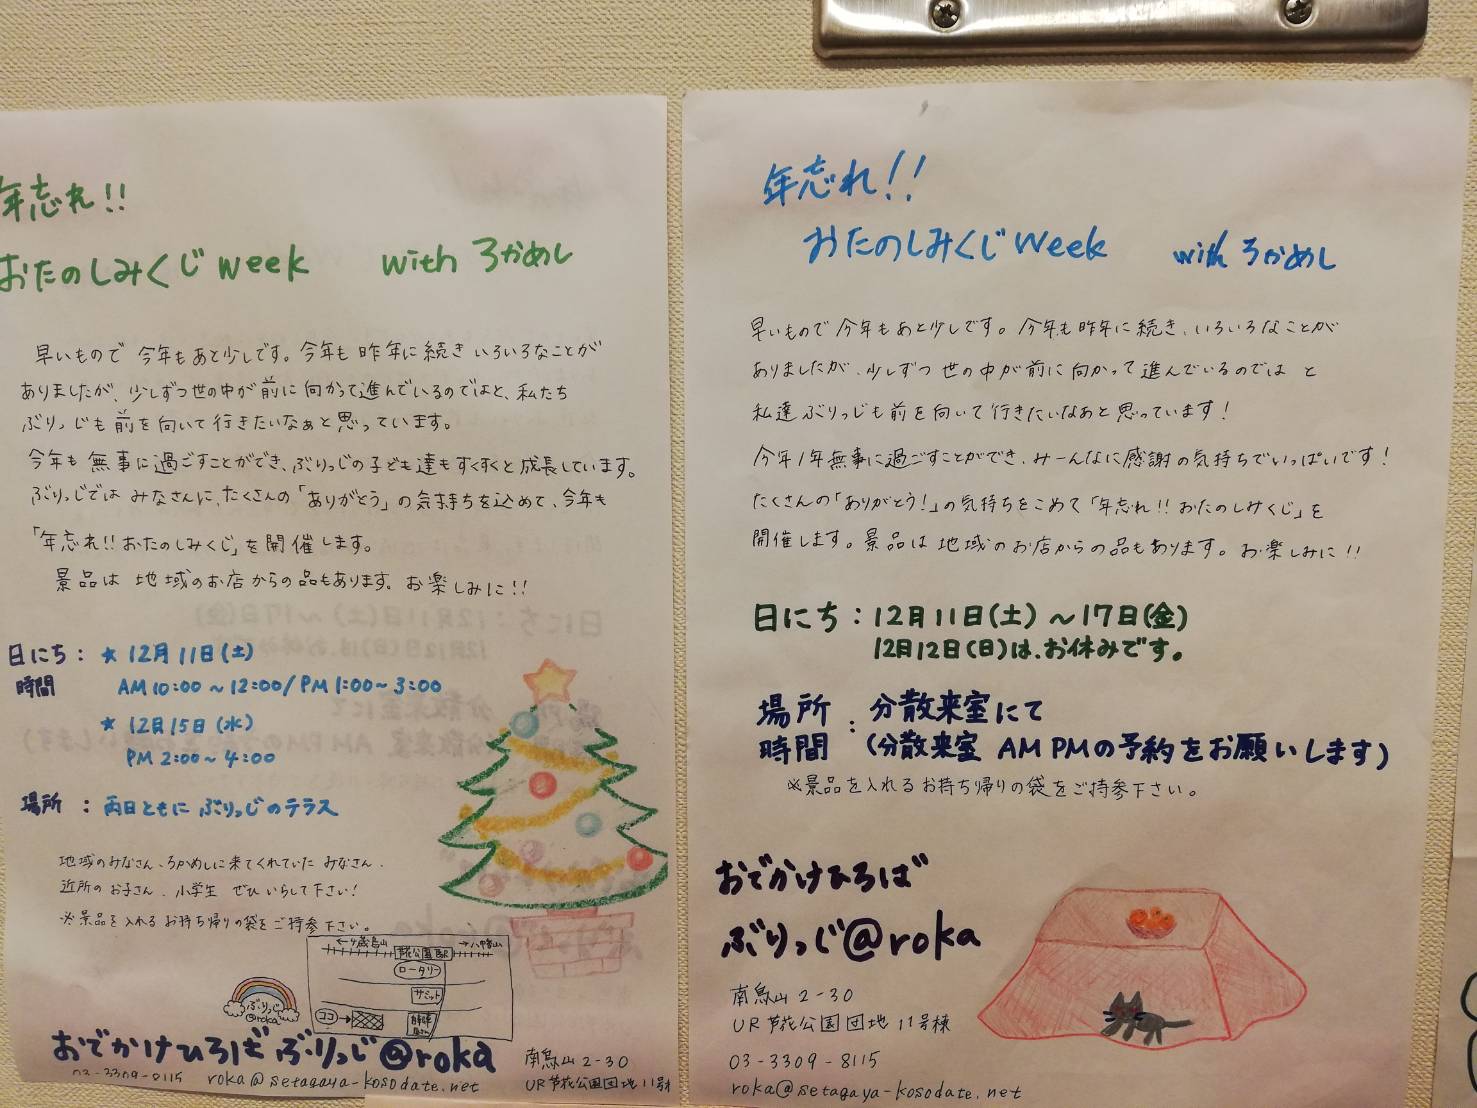 年忘れ!!
おたのしみくじweek with ろかめし
早いもので 今年もあと少しです。今年も 昨年に続き いろいろなことが
ありましたが、少しずつ世の中が前に向かって進んでいるのではと、私たち
ぶりっじも前を向いて行きたいなぁと思っています。
今年も無事に過ごすことができ、ぶりっじの子ども達もすくすくと成長しています。
ぶりっじでは みなさんに、たくさんの「ありがとう」の気持ちを込めて、今年も
「年忘れ!!おたのしみくじ」を開催します。
景品は 地域のお店からの品もあります。お楽しみに!!
日にち : ★ 12月11日(土)
時間 AM10:00~12:00/PM1:00~3:00
★ 12月15日(水)
PM 2:00~4:00
場所 : 両日ともに ぶりっじのテラス
地域のみなさん、ろかめしに来てくれていた みなさん、
近所のお子さん、小学生 ぜひいらして下さい!
※景品を入れるお持ち帰りの袋をご持参下さい。
←千歳烏山 芦花公園駅 →八幡山
ロータリー
サミット
ココ→
ぶりっじ
@roka
おでかけひろば ぶりっじ@roka
03-3309-8115 roka@setagaya-kosodate.net
南烏山2-30
UR芦花公園団地11号棟
年忘れ!!
おたのしみくじweek with ろかめし
早いもので 今年もあと少しです。今年も昨年に続き、いろいろなことが
ありましたが、少しずつ 世の中が前に向かって進んでいるのでは と
私達ぶりっじも前を向いて行きたいなあと思っています!
今年1年無事に過ごすことができ、みーんなに感謝の気持ちでいっぱいです!
たくさんの「ありがとう!」の気持ちをこめて「年忘れ!!おたのしみくじ」を
開催します。景品は地域のお店からの品もあります。お楽しみに!!
日にち : 12月11日(土)~17日(金)
12月12日(日)は、お休みです。
場所 : 分散来室にて
時間 (分散来室 AM PMの予約をお願いします)
※景品を入れるお持ち帰りの袋をご持参下さい。
おでかけひろば
ぶりっじ@roka
南烏山2-30
UR芦花公園団地11号棟
03-3309-8115
roka@setagaya-kosodate.net